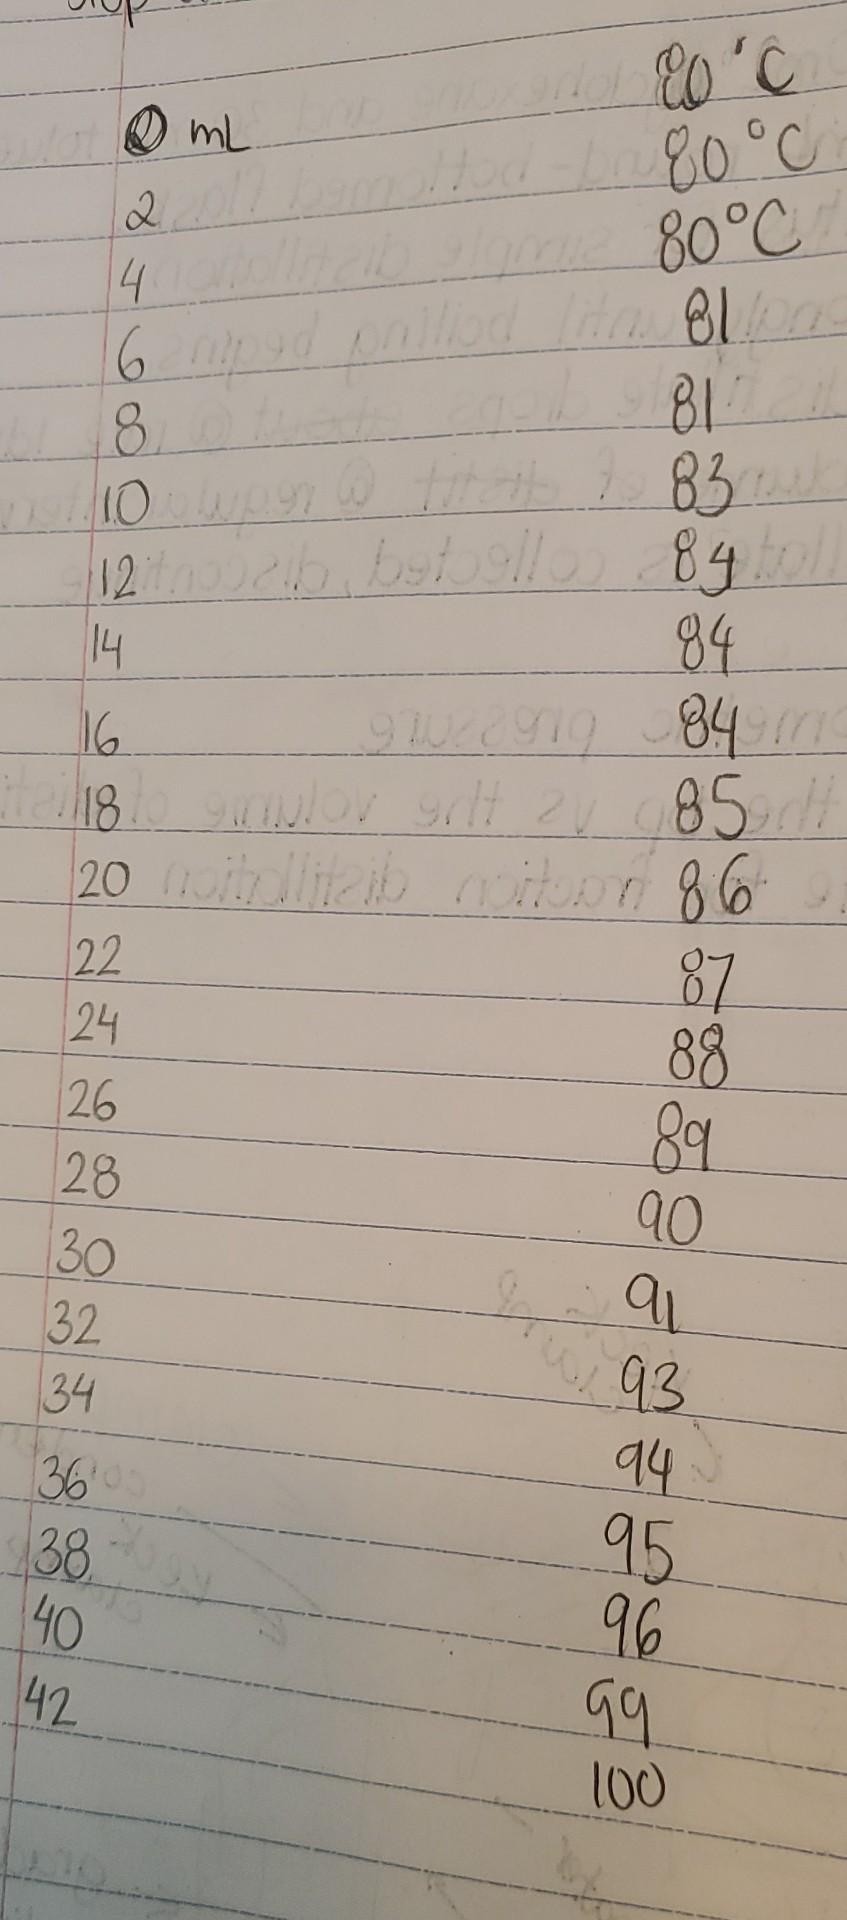 0 mL 80°C
2 80°C
4 80°C
6 81
8 81
10 83
12 84
14 84
16 84
18 85
20 86
22 87
24 88
26 89
28 90
30 91
32 93
34 94
36 95
38 96
40 99
42 100